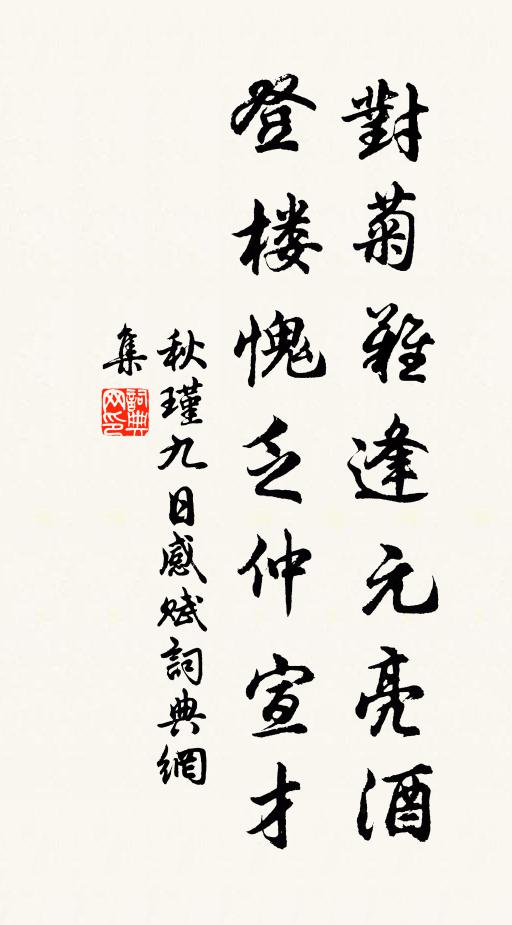 對菊難逢元亮酒
登楼愧乏仲宣才
秋瑾九日感赋詞典網
集
詞典
网印